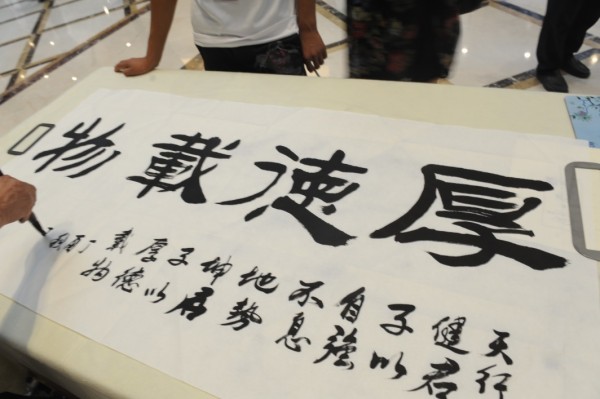 厚德載物
天行
健君
子以
自強
不息
地勢
坤君
子以
厚德
載物
丁酉